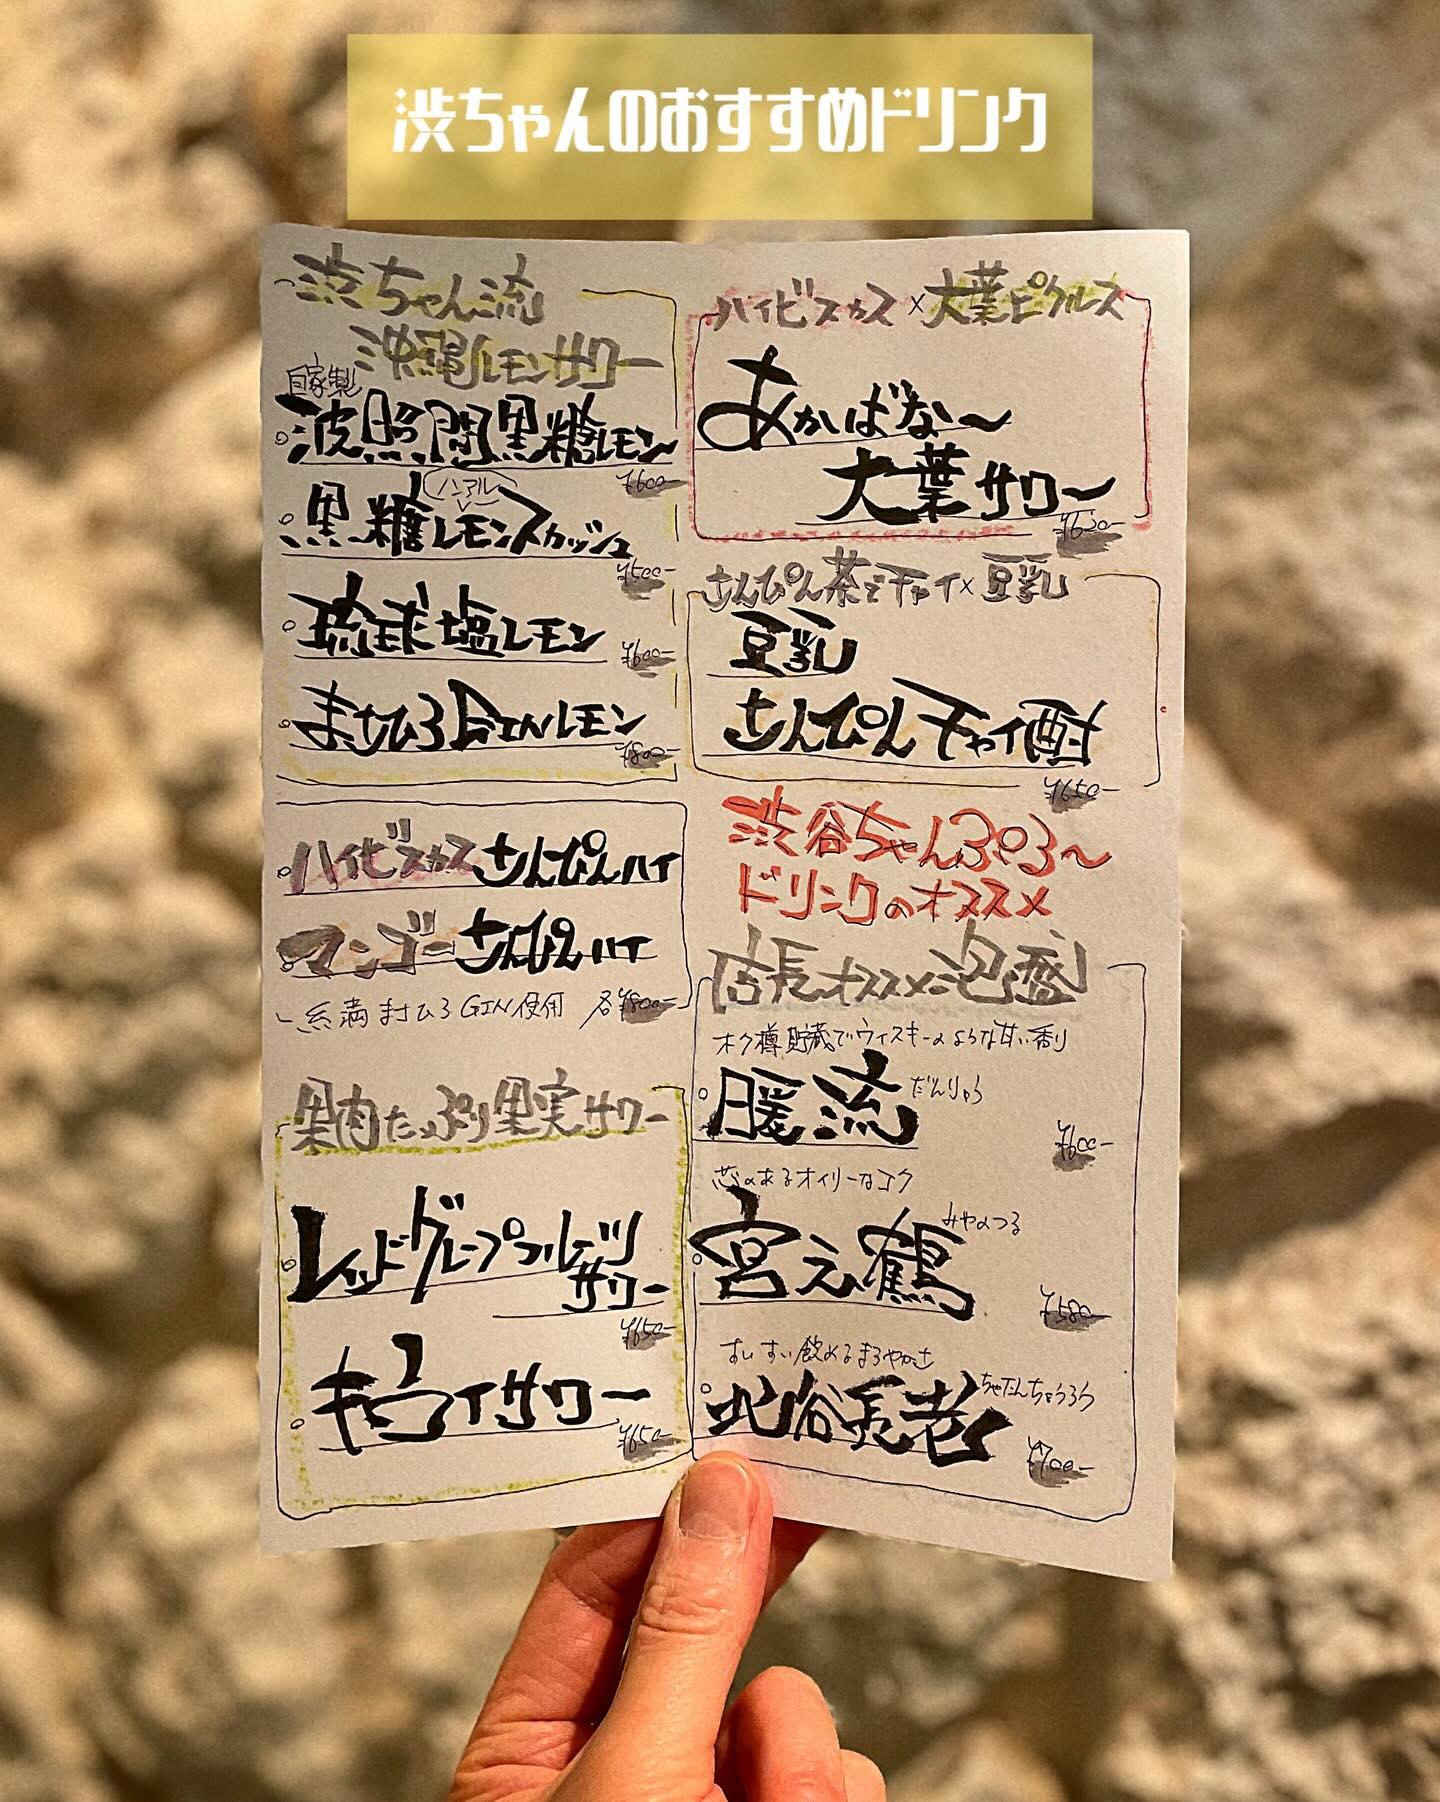 渋ちゃんのおすすめドリンク
渋ちゃん流
沖縄レモンサワー
自家製
波照間黒糖レモン
¥600-
ノンアル
黒糖レモンスカッシュ
¥500-
琉球塩レモン
¥600-
まさひろGINレモン
¥800-
ハイビスカスさんぴんハイ
マンゴーさんぴんハイ
糸満まさひろGIN使用 各¥800-
果肉たっぷり果実サワー
レッドグレープフルーツ
サワー
¥650-
キウイサワー
¥650-
ハイビスカス×大葉ピクルス
あかばな〜
大葉サワー
¥630-
さんぴん茶でチャイ×豆乳
豆乳
さんぴんチャイ酎
¥650-
渋谷ちゃんぷる〜
ドリンクのオススメ
店長オススメ泡盛
オク樽貯蔵でウィスキーのような甘い香り
暖流 だんりゅう
¥600-
芯のあるオイリーなコク
宮之鶴 みやのつる
¥580-
すいすい飲めるまろやかさ
北谷長老 ちゃたんちょうろう
¥700-